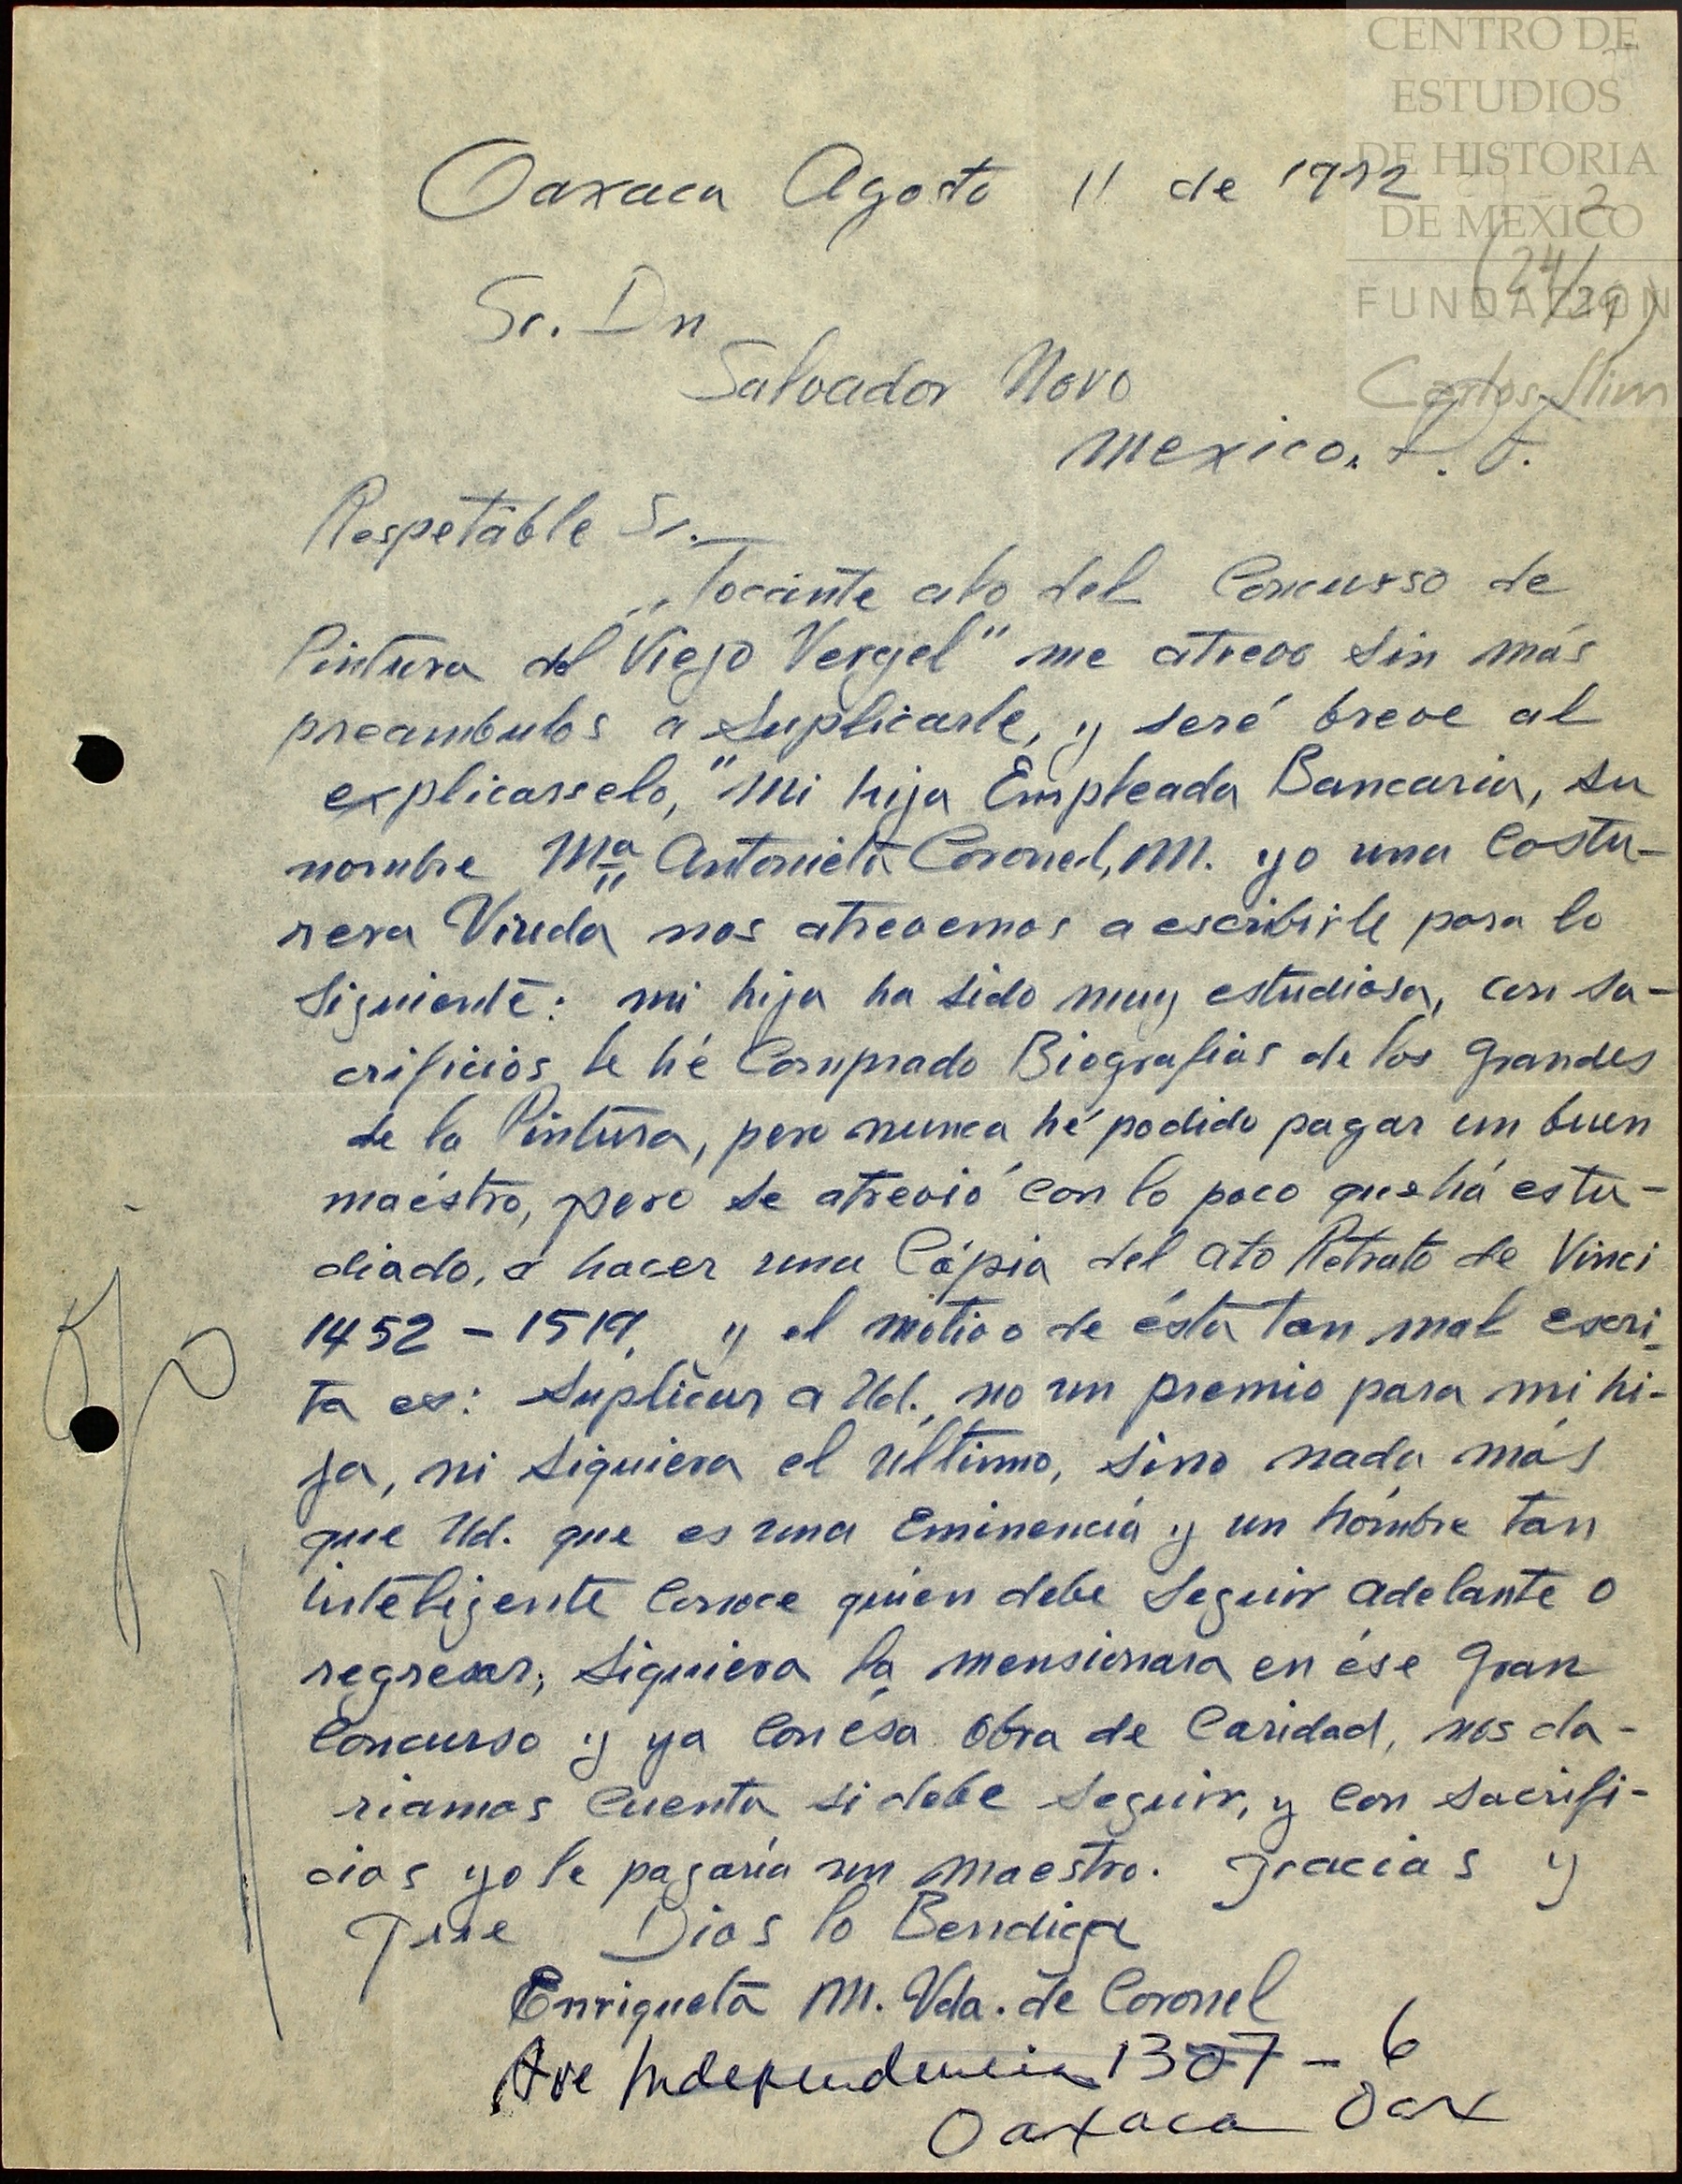 CENTRO DE
ESTUDIOS
DE HISTORIA
DE MEXICO
FUNDACIÓN
Carlos Slim
2
(24/29)
Oaxaca Agosto 11 de 1972
Sr. Dn
Salvador Novo
Mexico. D. F.
Respetable Sr.—
Tocante alo del Concurso de
Pintura del "Viejo Vergel" me atrevo sin más
preambulos a suplicarle, y seré breve al
explicarselo, "Mi hija Empleada Bancaria, su
nombre Ma Antonieta Coronel, M. yo una Costu-
rera Viuda nos atrevemos a escribirle para lo
siguiente: mi hija ha sido muy estudiosa, con sa-
crificios le hé Comprado Biografias de los grandes
de la Pintura, pero nunca hé podido pagar un buen
maéstro, pero se atrevió con lo poco que há estu-
diado, a hacer una Cópia del Ato Retrato de Vinci
1452 - 1519. y el motivo de ésta tan mal escri-
ta es: suplicar a Ud., no un premio para mi hi-
ja, ni siquiera el último, sino nada más
que Ud. que es una Eminencia y un hómbre tan
intelijente Conoce quien debe seguir adelante o
regresar; siquiera la mensionara en ése gran
Concurso y ya Con ésa Obra de Caridad, nos da-
riamos Cuenta si debe seguir, y con sacrifi-
cios yo le pagaría un maestro. gracias y
que Dios lo Bendiga
Enriqueta M. Vda. de Coronel
Ave Independencia 1307 - 6
Oaxaca Oax